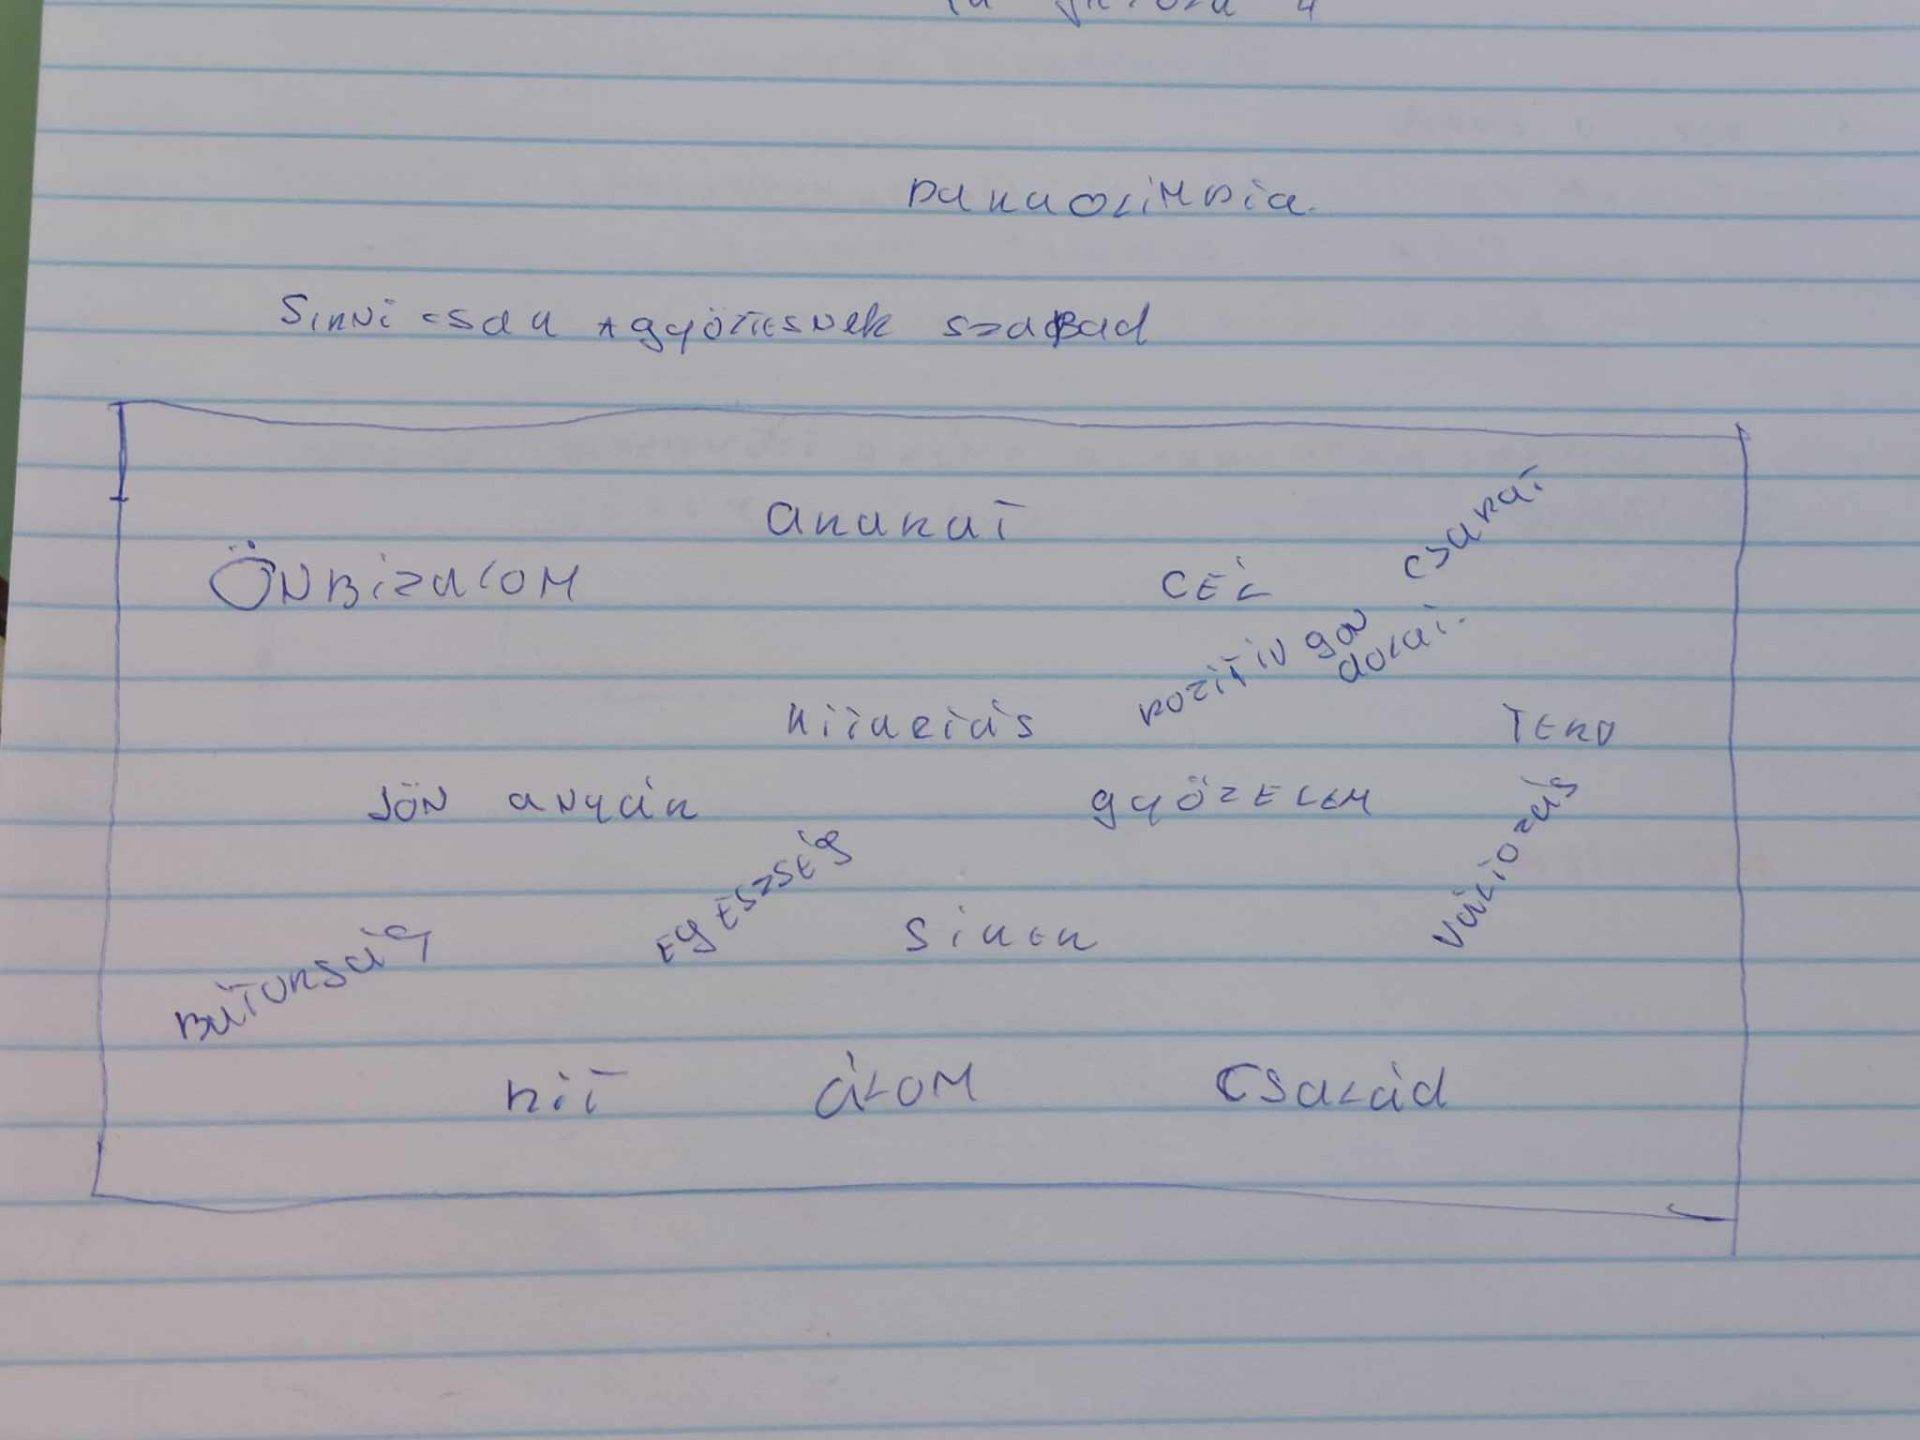 PARAOLIMPia.
Sírni csak a győztesnek szabad
aKaRaT
CSAPAT
ÖNBiZaLOM
CÉL
POZiTiV gon
doLaT.
KiTaRTáS
TERV
JÖN aNYáK
GYŐZELEM
VáLTOZáS
EgÉSZSÉg
BáTORSág
SiKER
HiT
áLOM
CSaLád